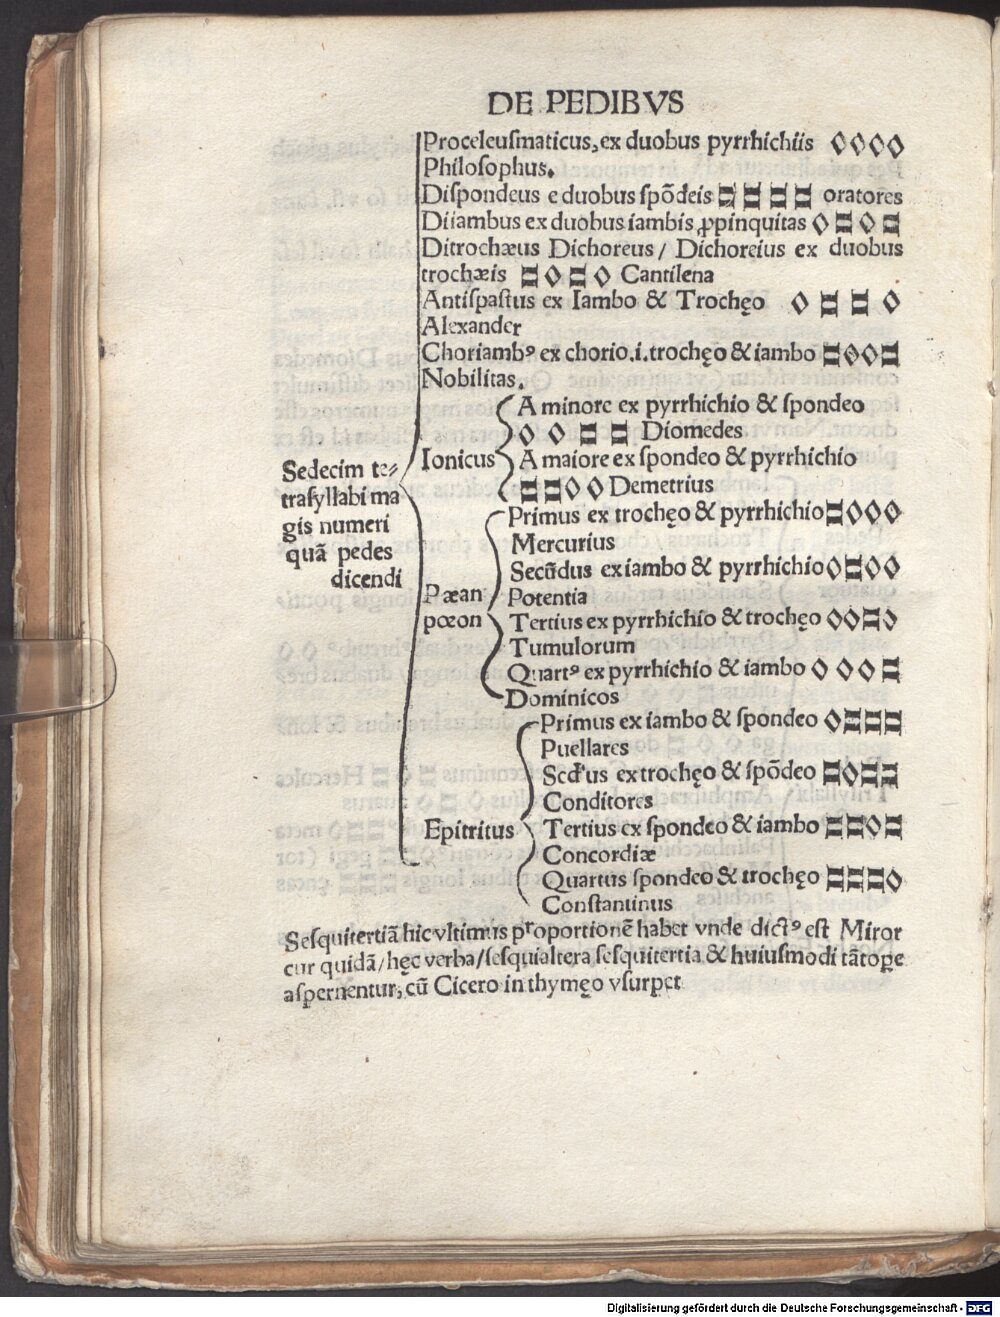 DE PEDIBVS
Proceleuſmaticus, ex duobus pyrrhichiis ◊◊◊◊
Philoſophus.
Diſpondeus e duobus ſpōdeis □ □ □ □ oratores
Diiambus ex duobus iambis ꝓpinquitas ◊ □ ◊ □
Ditrochæus Dichoreus / Dichoreius ex duobus
trochæis □ ◊ □ ◊ Cantilena
Antiſpaſtus ex Iambo & Trochęo ◊ □ □ ◊
Alexander
Choriambꝰ ex chorio .i. trochęo & iambo □◊◊□
Nobilitas.
A minore ex pyrrhichio & ſpondeo
◊ ◊ □ □ Diomedes
Ionicus
A maiore ex ſpondeo & pyrrhichio
□□◊ ◊ Demetrius
Sedecim te⸗
traſyllabi ma
gis numeri
quā pedes
dicendi
Primus ex trochęo & pyrrhichio □◊◊◊
Mercurius
Secūdus ex iambo & pyrrhichio ◊□◊◊
Pæan
Potentia
pœon
Tertius ex pyrrhichio & trochęo ◊◊□◊
Tumulorum
Quartꝰ ex pyrrhichio & iambo ◊ ◊◊□
Dominicos
Primus ex iambo & ſpondeo ◊□□□
Puellares
Scd'us ex trochęo & ſpōdeo □◊□□
Conditores
Epitritus
Tertius ex ſpondeo & iambo □□◊□
Concordiæ
Quartus ſpondeo & trochęo □□□◊
Conſtantinus
Seſquitertiā hic vltimus proportionē habet vnde dictꝰ eſt Miror
cur quidā / hęc verba / ſeſquialtera ſeſquitertia & huiuſmodi tātope
aſpernentur, cū Cicero in thymęo vſurpet
Digitalisierung gefördert durch die Deutsche Forschungsgemeinschaft - DFG